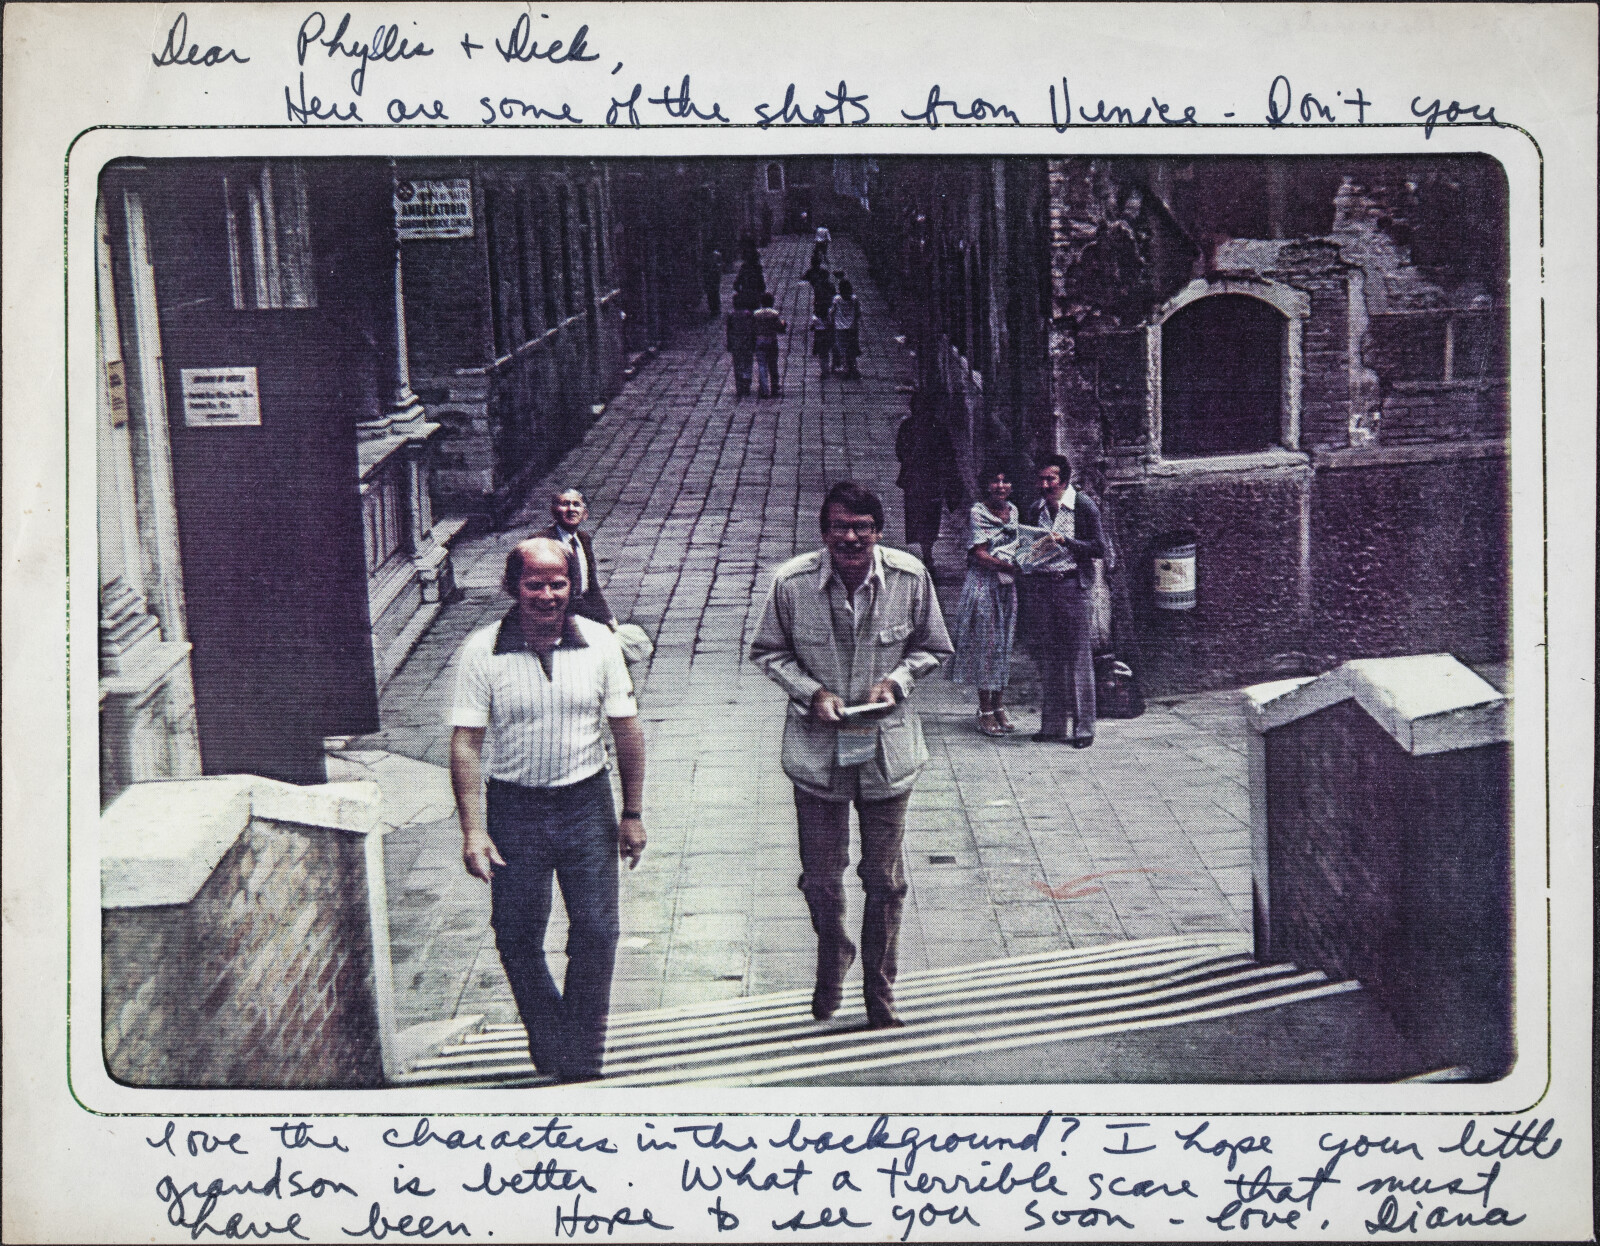 Dear Phyllis + Dick,
Here are some of the shots from Vienice - Don't you
AMBULATORIO
love the characters in the background? I hope your little
grandson is better. What a terrible scare that must
have been. Hope to see you soon - love, Diana